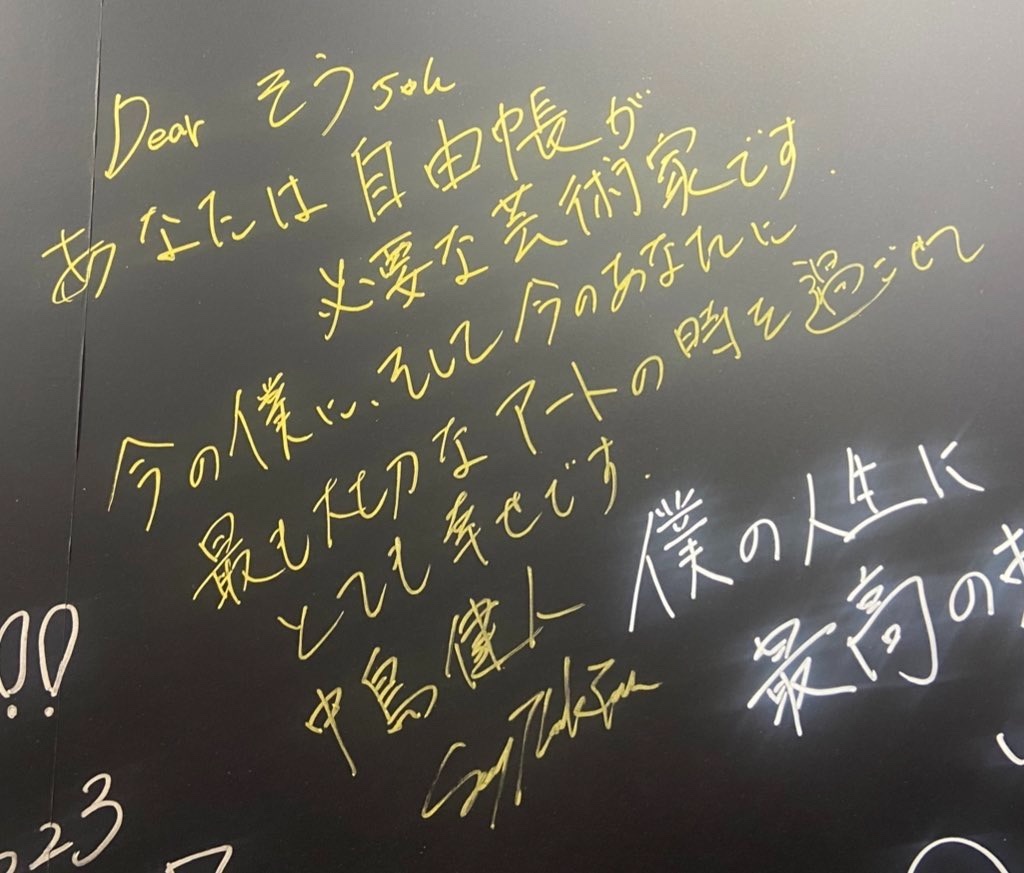 Dear そうson
あなたは自由帳が
必要な芸術家です.
今の僕に、そして今のあなたに
最も大切なアートの時を過ごせて
とても幸せです.
中島健人
僕の人生に
最高の
!!
23